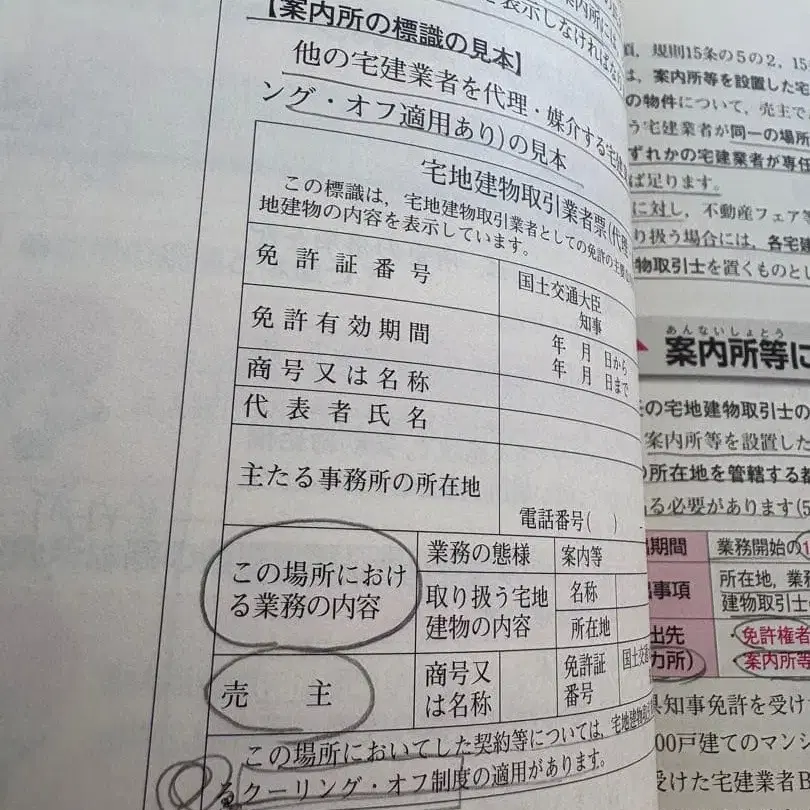 表示しなければな
【案内所の標識の見本】
他の宅建業者を代理・媒介する宅建
ング・オフ適用あり)の見本
宅地建物取引業者票(代理
この標識は、宅地建物取引業者としての免許の主要な
地建物の内容を表示しています。
免許証番号
国土交通大臣
知事
免許有効期間
年 月 日から
年 月 日まで
商号又は名称
代表者氏名
主たる事務所の所在地
電話番号( ) -
この場所におけ
る業務の内容
業務の態様
案内等
取り扱う宅地
建物の内容
名称
所在地
売 主
商号又
は名称
免許証
番号
国土交
この場所においてした契約等については、宅地建物
るクーリング・オフ制度の適用があります。
規則15条の5の2,15
は、案内所等を設置した宅
の物件について、売主で
う宅建業者が同一の場所
ずれかの宅建業者が専任
ば足ります。
に対し、不動産フェア等
り扱う場合には、各宅建
物取引士を置くものとし
あんないしょとう
案内所等に
の宅地建物取引士の
案内所等を設置した
の所在地を管轄する都
る必要があります(5
期間
業務開始の1
事項
所在地,業務
建物取引士
出先
免許権者
カ所)
案内所等
県知事免許を受け
00戸建てのマンシ
受けた宅建業者B